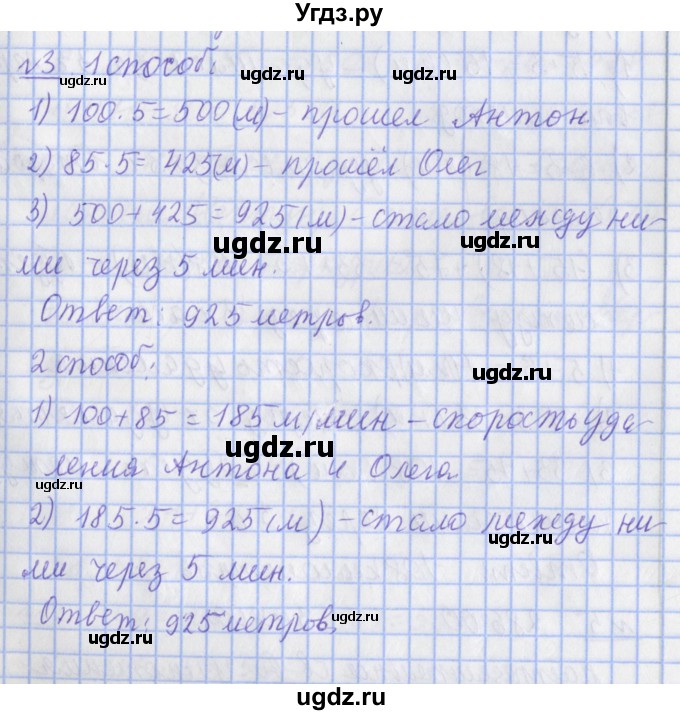 Угдз.ру
№3 1 способ:
ugdz.ru ugdz.ru ugdz.ru
1) 100·5=500(м)- прошел Антон
ugdz.ru ugdz.ru
2) 85·5= 425(м)- прошёл Олег
3) 500+425=925(м)-стало между ни-
ugdz.ru ugdz.ru
ми через 5 мин.
ugdz.ru
Ответ: 925 метров.
2 способ:
ugdz.ru
1) 100+85=185 м/мин -скорость уда-
ugdz.ru
ления Антона и Олега
ugdz.ru
2) 185·5=925(м) -стало между ни-
ugdz.ru
ми через 5 мин.
Ответ: 925 метров.
ugdz.ru ugdz.ru
ugdz.ru